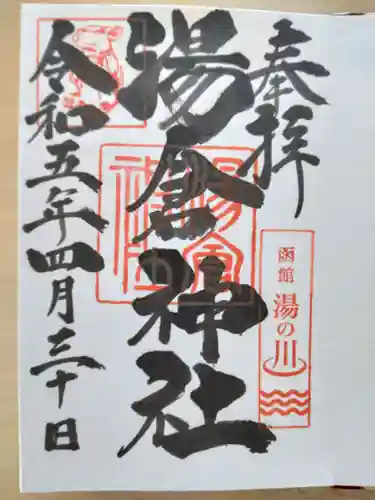 奉拝
湯倉神社
令和五年四月三十日
函館
湯の川